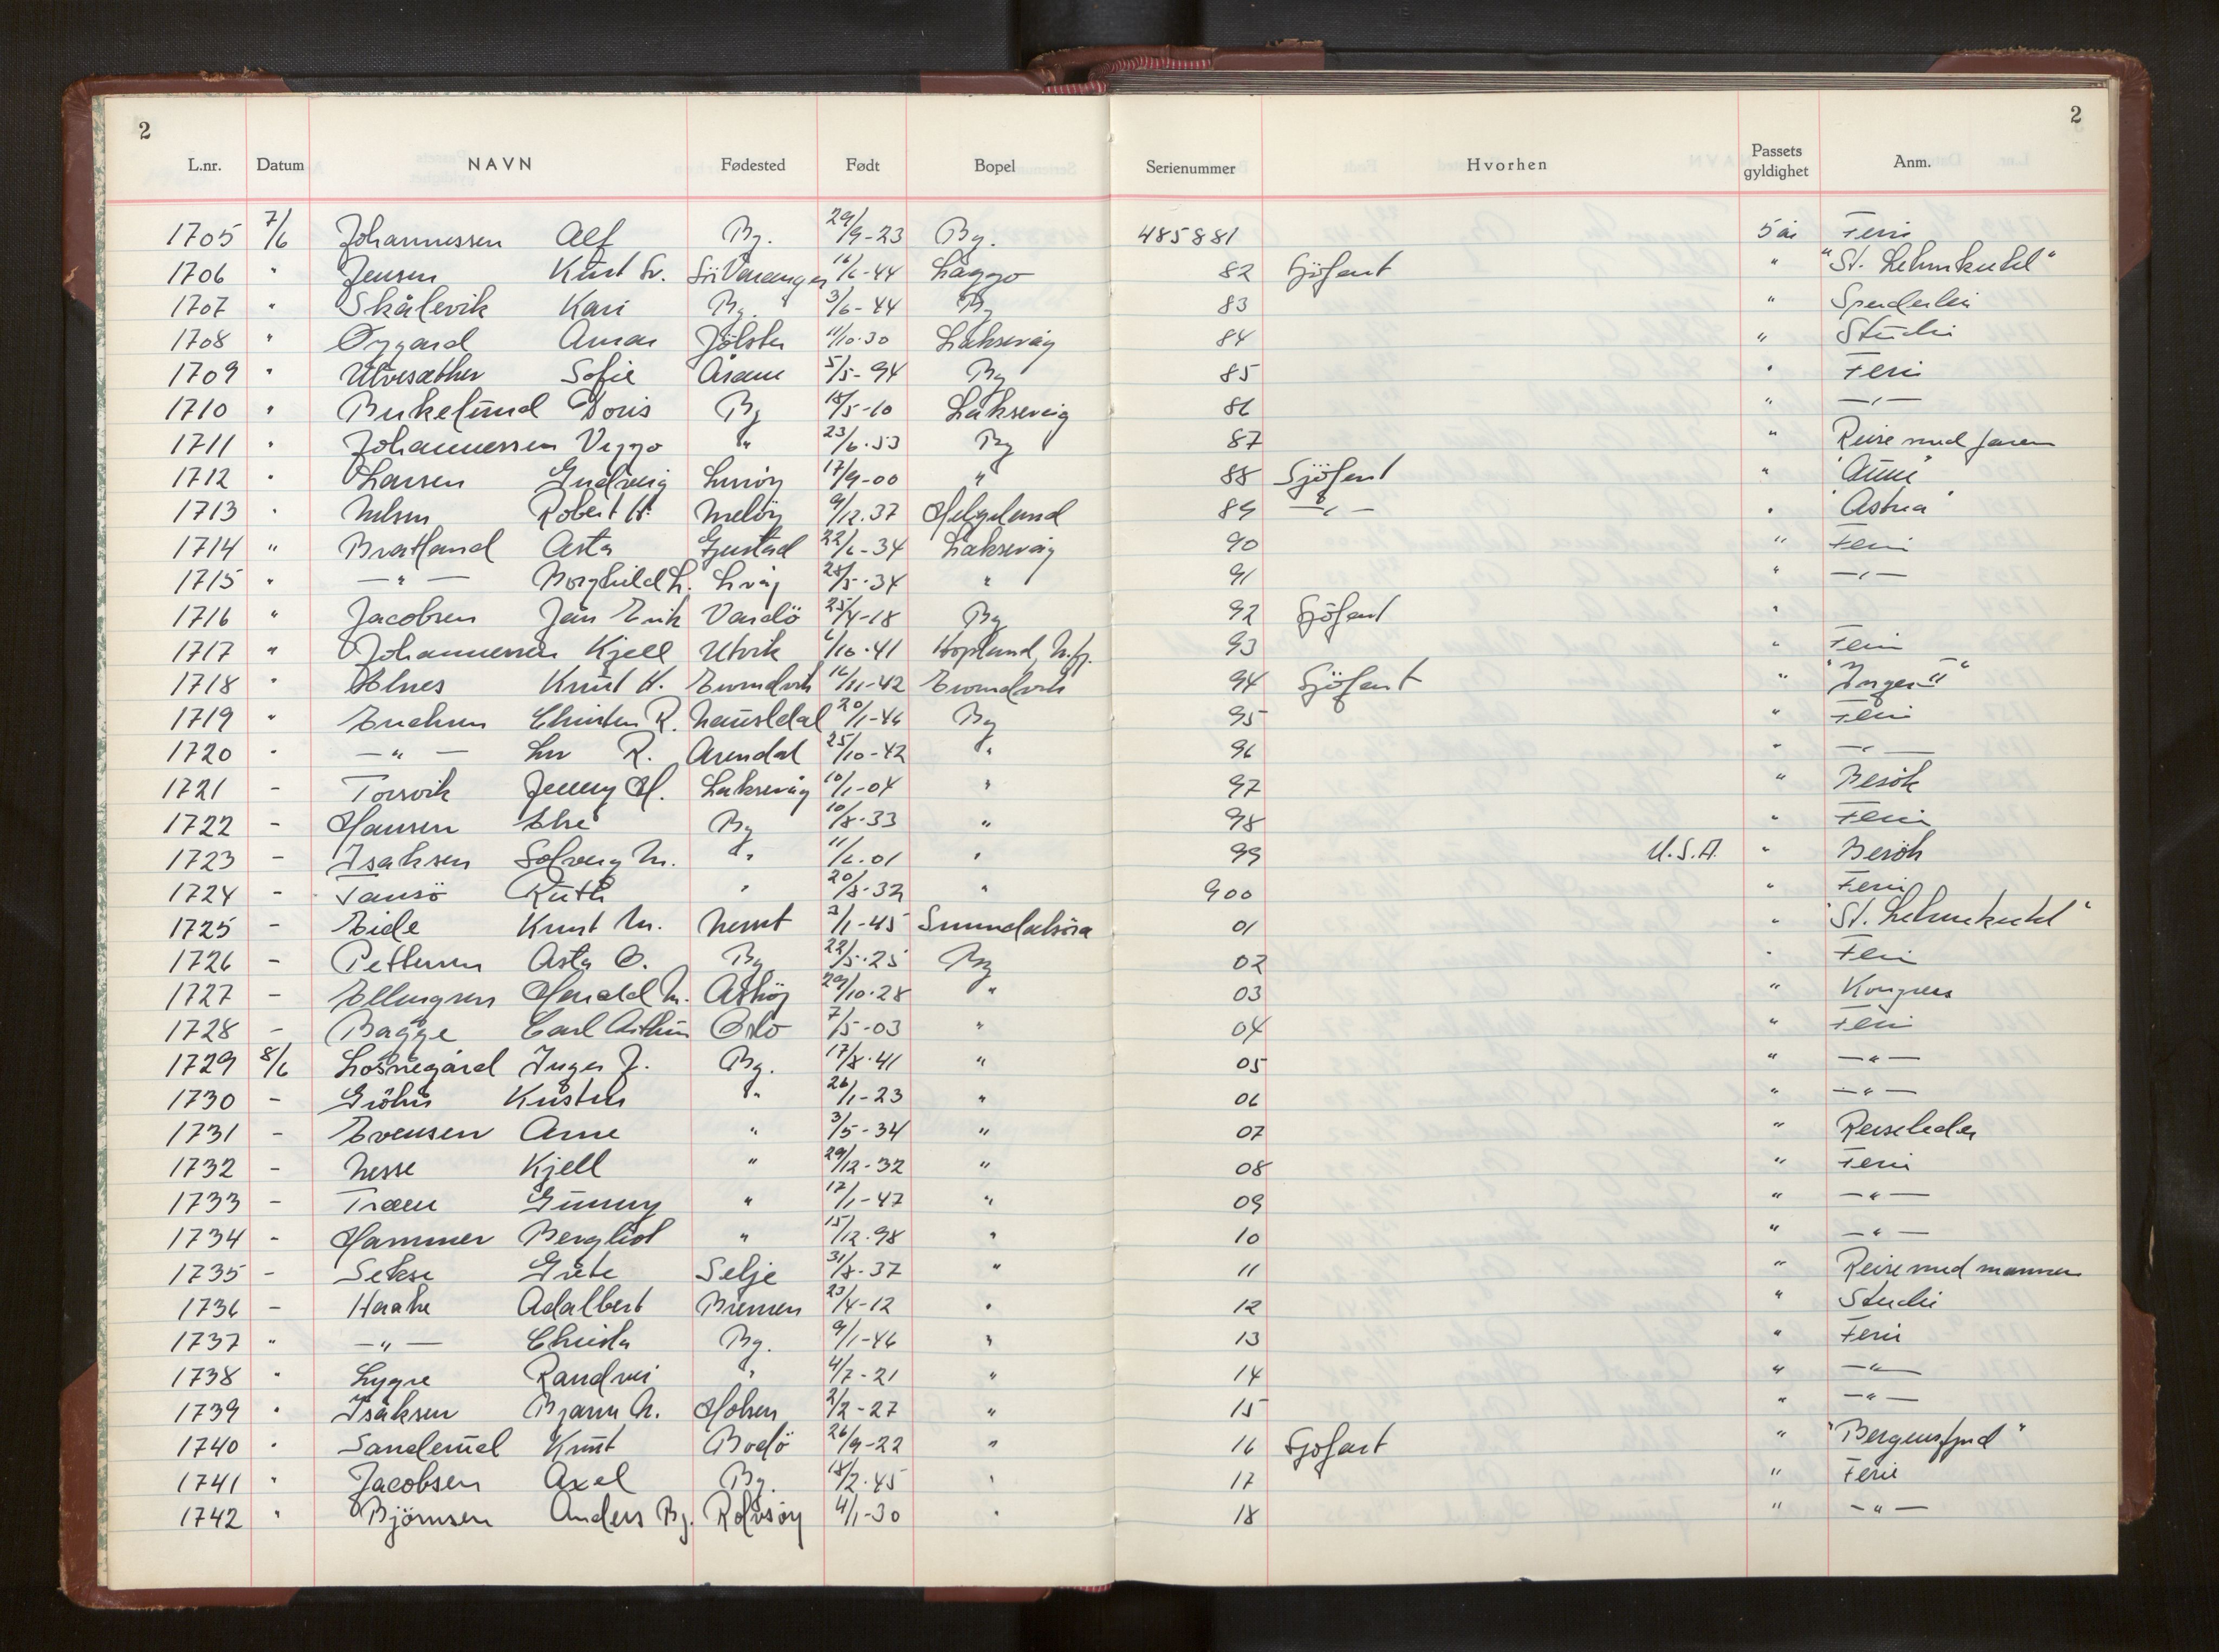 2 2
L.nr. Datum NAVN Fødested Født Bopel Serienummer Hvorhen Passets gyldighet Anm.
1705 7/6 Johannessen Alf Bg. 29/9-23 Bg. 485881 5 år Ferie
1706 " Jensen Knut Sv. Sö Varanger 16/6-44 82 Sjöfart " "St. Lehmkuhl"
1707 " Skålevik Kari Bg. 3/6-44 Bg 83 "
1708 " Øygard Jölster 11/10-30 Laksevåg 84 " Studie
1709 " Utvesæther Sofie Åsane 5/5-94 Bg 85 " Ferie
1710 " Birkelund Doris Bg 18/5-10 Laksevåg 86 " —"—
1711 " Johannessen Viggo " 23/6-53 Bg 87 " Reise med faren
1712 " Larsen Gudveig Luröy 17/9-00 " 88 Sjöfart "
1713 " Nilsen Robert H. Melöy 9/12-37 Helgeland 89 —"— " "Astrea"
1714 " Bratland Asta 22/6-34 Laksevåg 90 " Ferie
1715 " —"— Borghild L. Lvåg 28/5-34 " 91 " —"—
1716 " Jacobsen Jan Erik Vardö 25/4-18 Bg 92 Sjöfart "
1717 " Johannessen Kjell Utvik 6/10-41 Hopland, N.fj. 93 " Ferie
1718 " Knut H. Eivindvik 16/11-42 Eivindvik 94 Sjöfart " "Inger II"
1719 " Christen R. Naustdal 20/1-46 Bg 95 " Ferie
1720 " —"— R. Arendal 25/10-42 " 96 " —"—
1721 - Torsvik Jenny H. Laksevåg 10/1-04 " 97 " Besök
1722 - Hansen Else Bg 10/8-33 " 98 " Ferie
1723 - Isaksen Solveig M. " 11/6-01 " 99 U.S.A. " Besök
1724 - Tansö Ruth " 20/8-32 " 900 " Ferie
1725 - Eide Knut M. 2/1-45 Sunndalsöra 01 " "St. Lehmkuhl"
1726 - Pettersen Asta O. Bg 22/5-25 Bg 02 " Ferie
1727 - Ellingsen Harald M. Asköy 29/10-28 " 03 " Kongress
1728 - Bagge Carl Arthur Oslo 7/5-03 " 04 " Ferie
1729 8/6 Losnegård Inger J. Bg. 17/8-41 " 05 " —"—
1730 - Kirsten " 26/1-23 " 06 " —"—
1731 - Evensen Arne " 3/5-34 " 07 " Reiseleder
1732 - Nesse Kjell " 29/12-32 " 08 " Ferie
1733 - Træen Gunny " 17/1-47 " 09 " —"—
1734 - Hammer Bergliot " 15/12-98 " 10 " —"—
1735 - Sekse Grete Selje 31/8-37 " 11 " Reise med mannen
1736 - Haake Adalbert Bremen 23/4-12 " 12 " Studie
1737 " —"— Christa Bg. 9/1-46 " 13 " Ferie
1738 " Lygre Randvei " 4/7-21 " 14 " —"—
1739 " Isaksen Bjarne N. Holsen 2/2-27 " 15 " —"—
1740 " Sanderud Knut Bodö 26/9-22 " 16 Sjöfart " "Bergensfjord"
1741 " Jacobsen Axel Bg. 18/2-45 " 17 " Ferie
1742 " Björnsen Anders Bj. Rolvsöy 4/1-30 " 18 " —"—